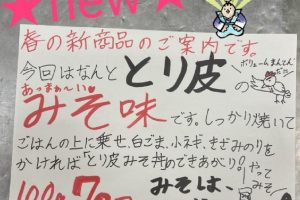 ★new★
春の新商品のご案内です
今回はなんと とり皮の
ボリュームまんてん
あっまぁ〜い
みそ味です。しっかり焼いて
ごはんの上に乗せ、白ごま、小ネギ、きざみのりを
かければ「とり皮みそ丼」のできあがり!
やって
みそ
みそは、